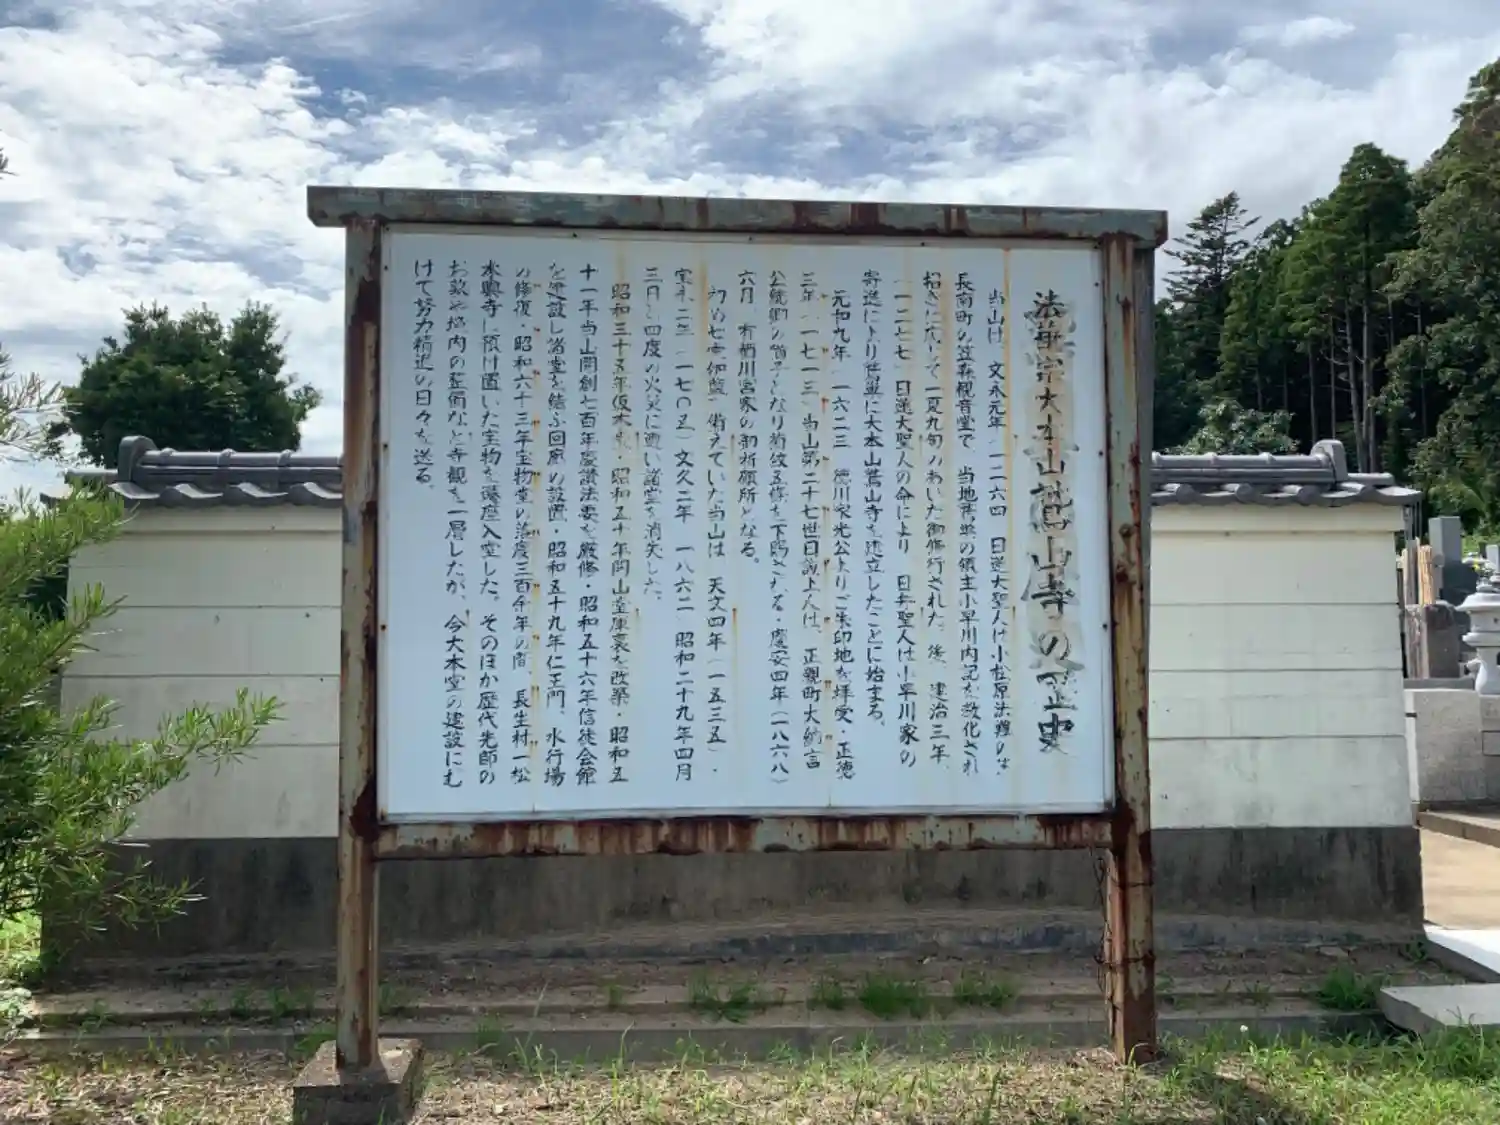 法華宗大本山鷲山寺の歴史
当山は、文永元年(一二六四)日蓮大聖人は小松原法難のは・
長南町の笠森観音堂で、当地鷲巣の領主小早川内記を教化され
招きに応じて一夏九旬のあいだ御修行された。後、建治三年、
(一二七七)日蓮大聖人の命により、日弁聖人は小早川家の
寄進により鷲巣に大本山鷲山寺を建立したことに始まる。
元和九年(一六二三)徳川家光公よりご朱印地を拝受・正徳
三年(一七一三)当山第二十七世日誠上人は、正親町大納言
公統卿の猶子となり菊紋五條を下賜される・慶安四年(一八六八)
六月、有栖川宮家の御祈願所となる。
初め七堂伽藍を備えていた当山は、天文四年(一五三五)・
宝永二年(一七〇五)文久二年(一八六二)昭和二十九年四月
三月と四度の火災に遭い諸堂を消失した。
昭和三十五年仮本堂・昭和五十年開山堂庫裏を改築・昭和五
十一年当山開創七百年慶讃法要を厳修・昭和五十六年信徒会館
を建設し諸堂を結ぶ回廊の設置・昭和五十九年仁王門、水行場
の修復・昭和六十三年宝物堂の落慶三百余年の間、長生村一松
本興寺に預け置いた宝物を遷座入堂した。そのほか歴代先師の
お墓や境内の整備など寺観を一層したが、今大本堂の建設にむ
けて努力精進の日々を送る。